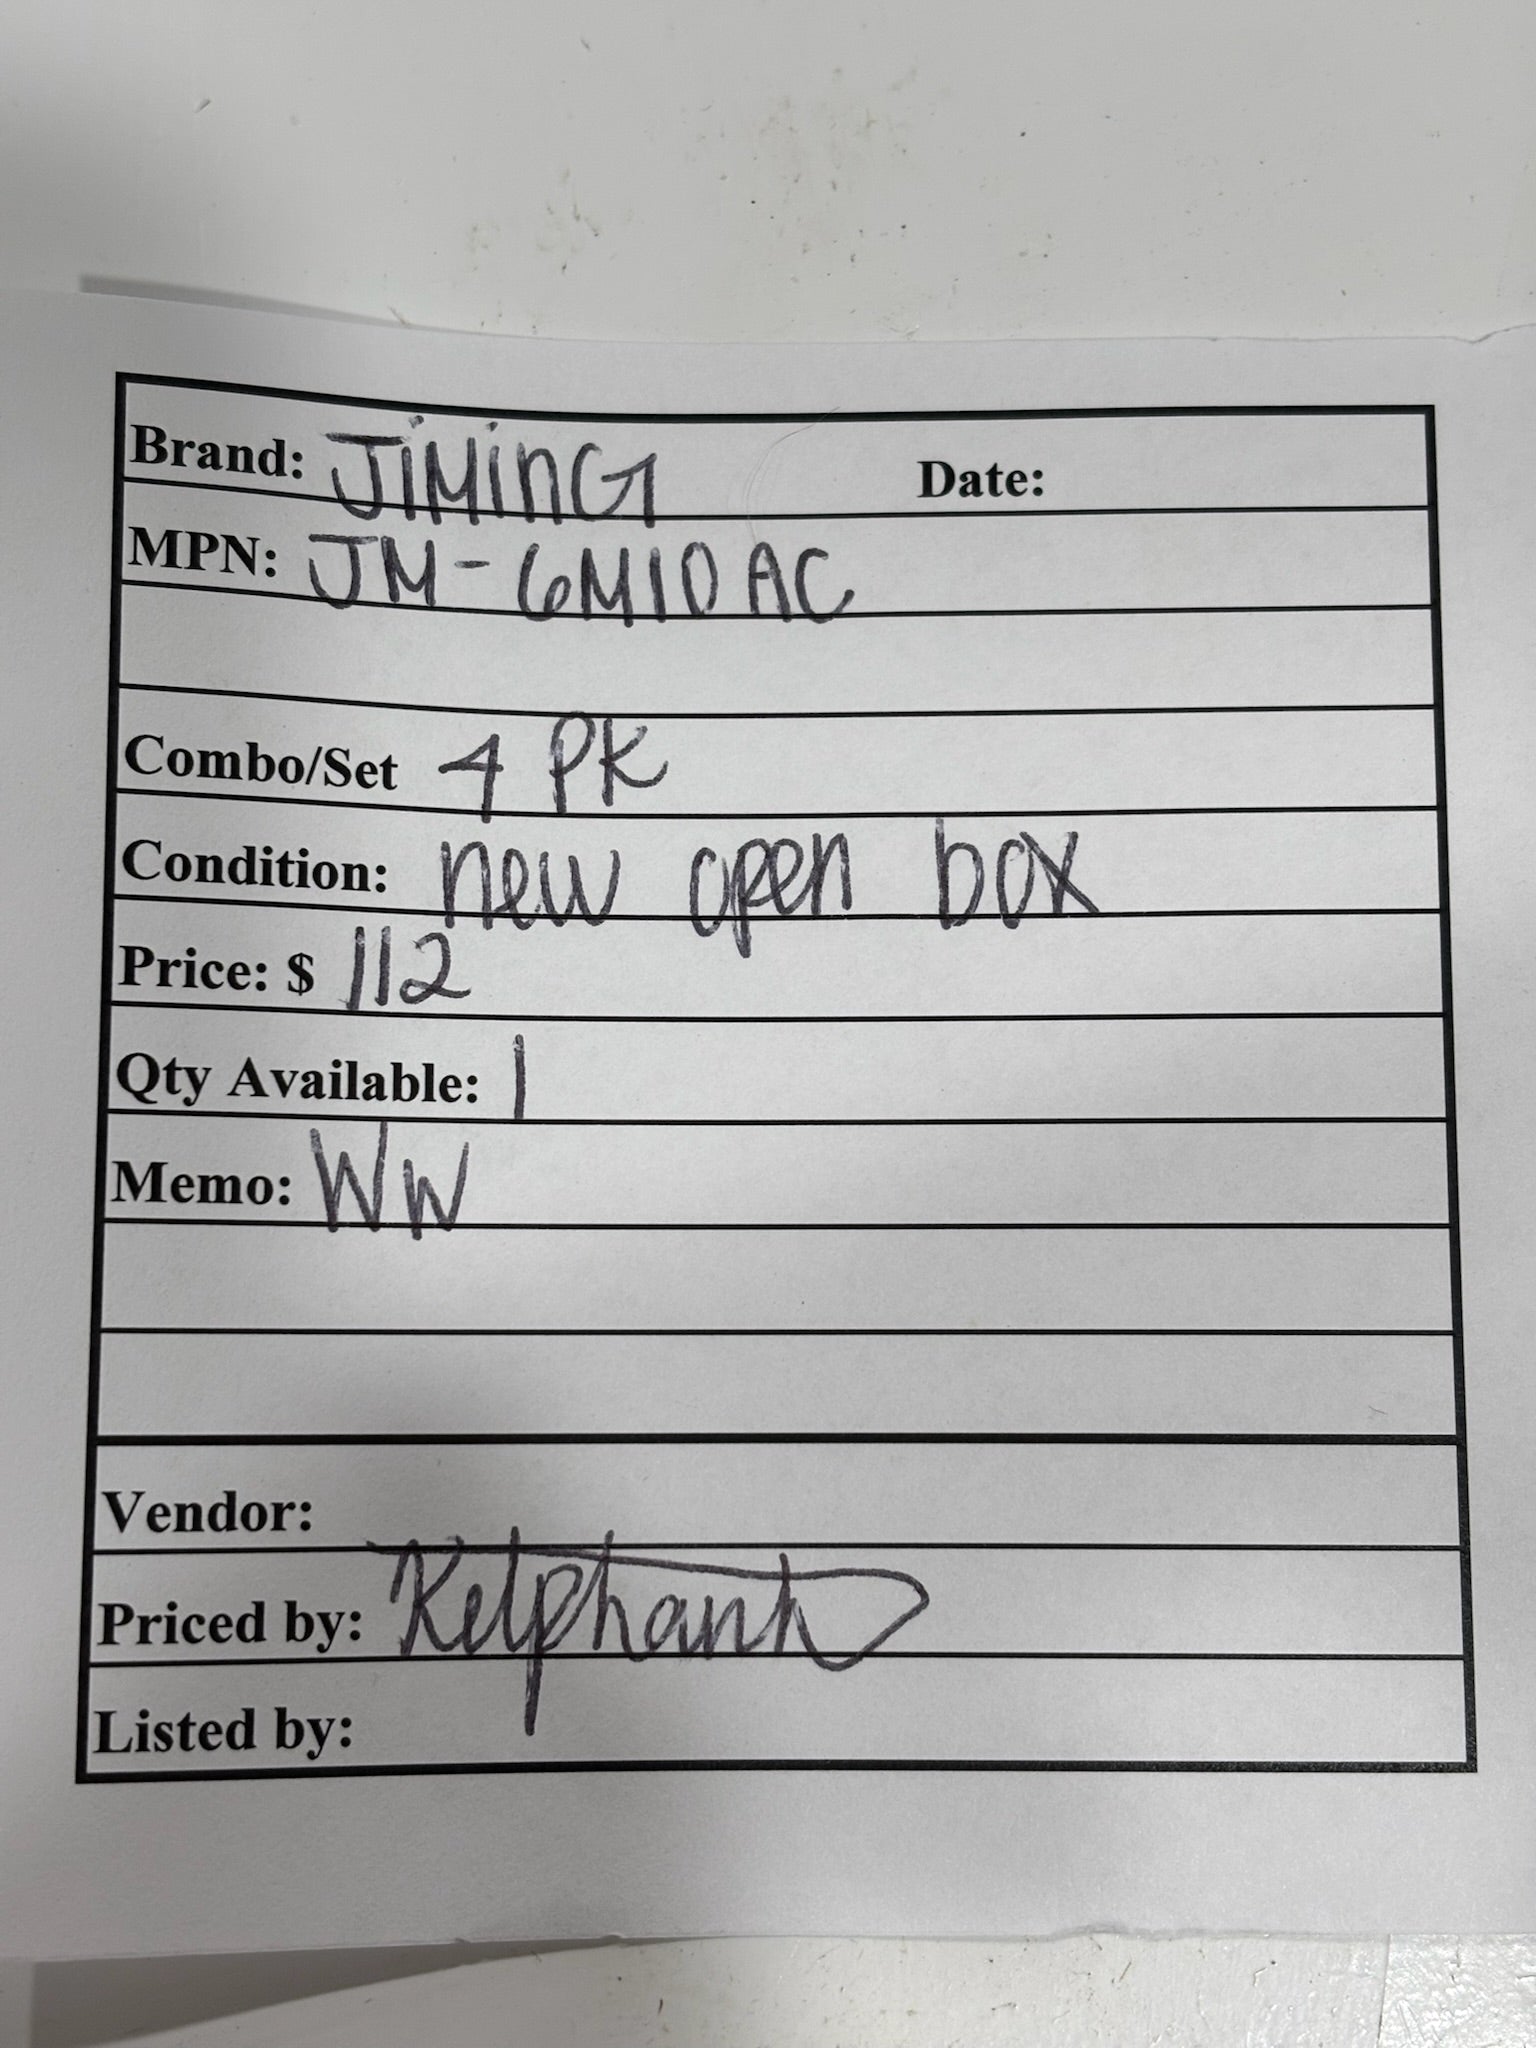 Brand: JiMinG Date:
MPN: JM-6M10AC
Combo/Set 4 PK
Condition: new open box
Price: $ 112
Qty Available: 1
Memo: WW
Vendor:
Priced by:
Listed by: